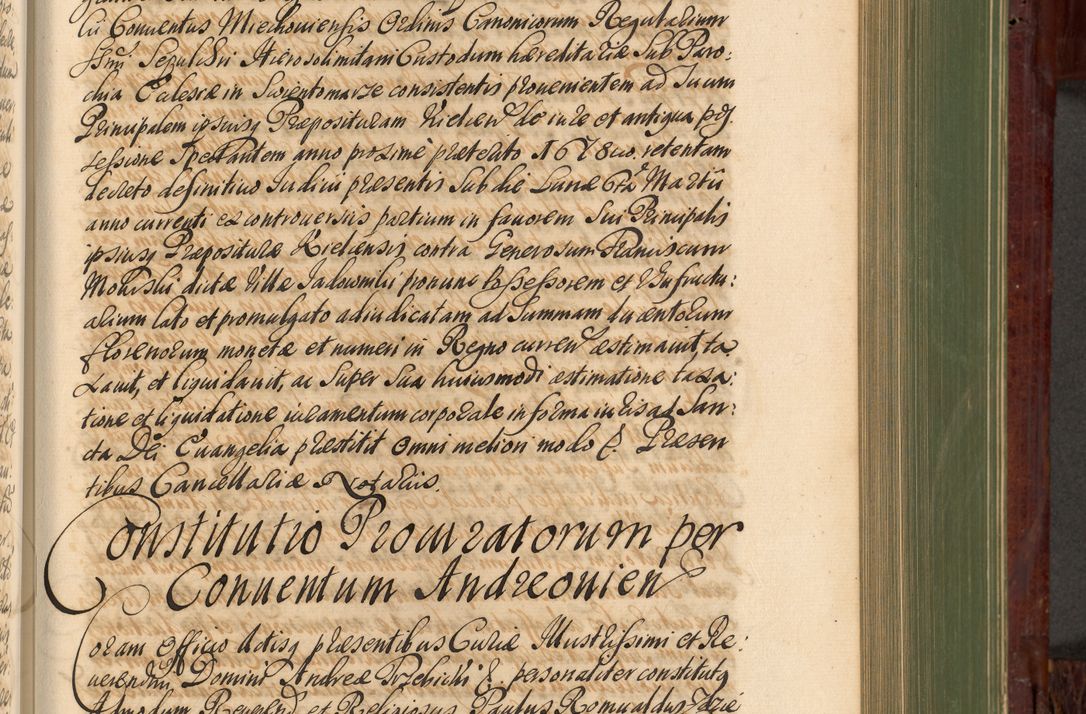 lii Conuentus Miechouiensis Ordinis Canonicorum Regularium
SSmi Sepulchri Hierosolimitani Custodum hæreditariæ Sub Paro:
chia Ecclesiæ in Swientomarze consistentis prouenientem ad Suum
Principalem ipsiusq Præposituram Kielcen de iure et antiqua pos
sessione Spectantem anno proxime præterito 1678uo, retentam
decreto definitiuo Iudicii præsentis Sub die Lunæ 6ta Martii
anno currenti ex controuersiis partium in fauorem Sui Principalis
ipsiusq Præposituræ Kielcensis contra Generosum Franciscum
Mokrski dictæ Villæ pronunc Possessorem et Vsufructu:
alium lato et promulgato adiudicatam ad Summam ducentorum
florenorum monetæ et numeri in Regno curren æstimauit, ta
xauit, et liquidauit, ac Super Sua huiusmodi æstimatione taxa:
tione et liquidatione iuramentum corporale in forma iuris ad San:
cta Dei Euangelia præstitit Omni meliori modo &. Præsen
tibus Cancellariæ Notariis.
Constitutio Procuratorum per
Conuentum Andreouien
Coram Officio Actisq præsentibus Curiæ Illustrissimi et Re:
uerendmi Domini Andreæ Trzebicki &. personaliter constitutq
Admodum Reverend et Religiosus Paulus Romualdus